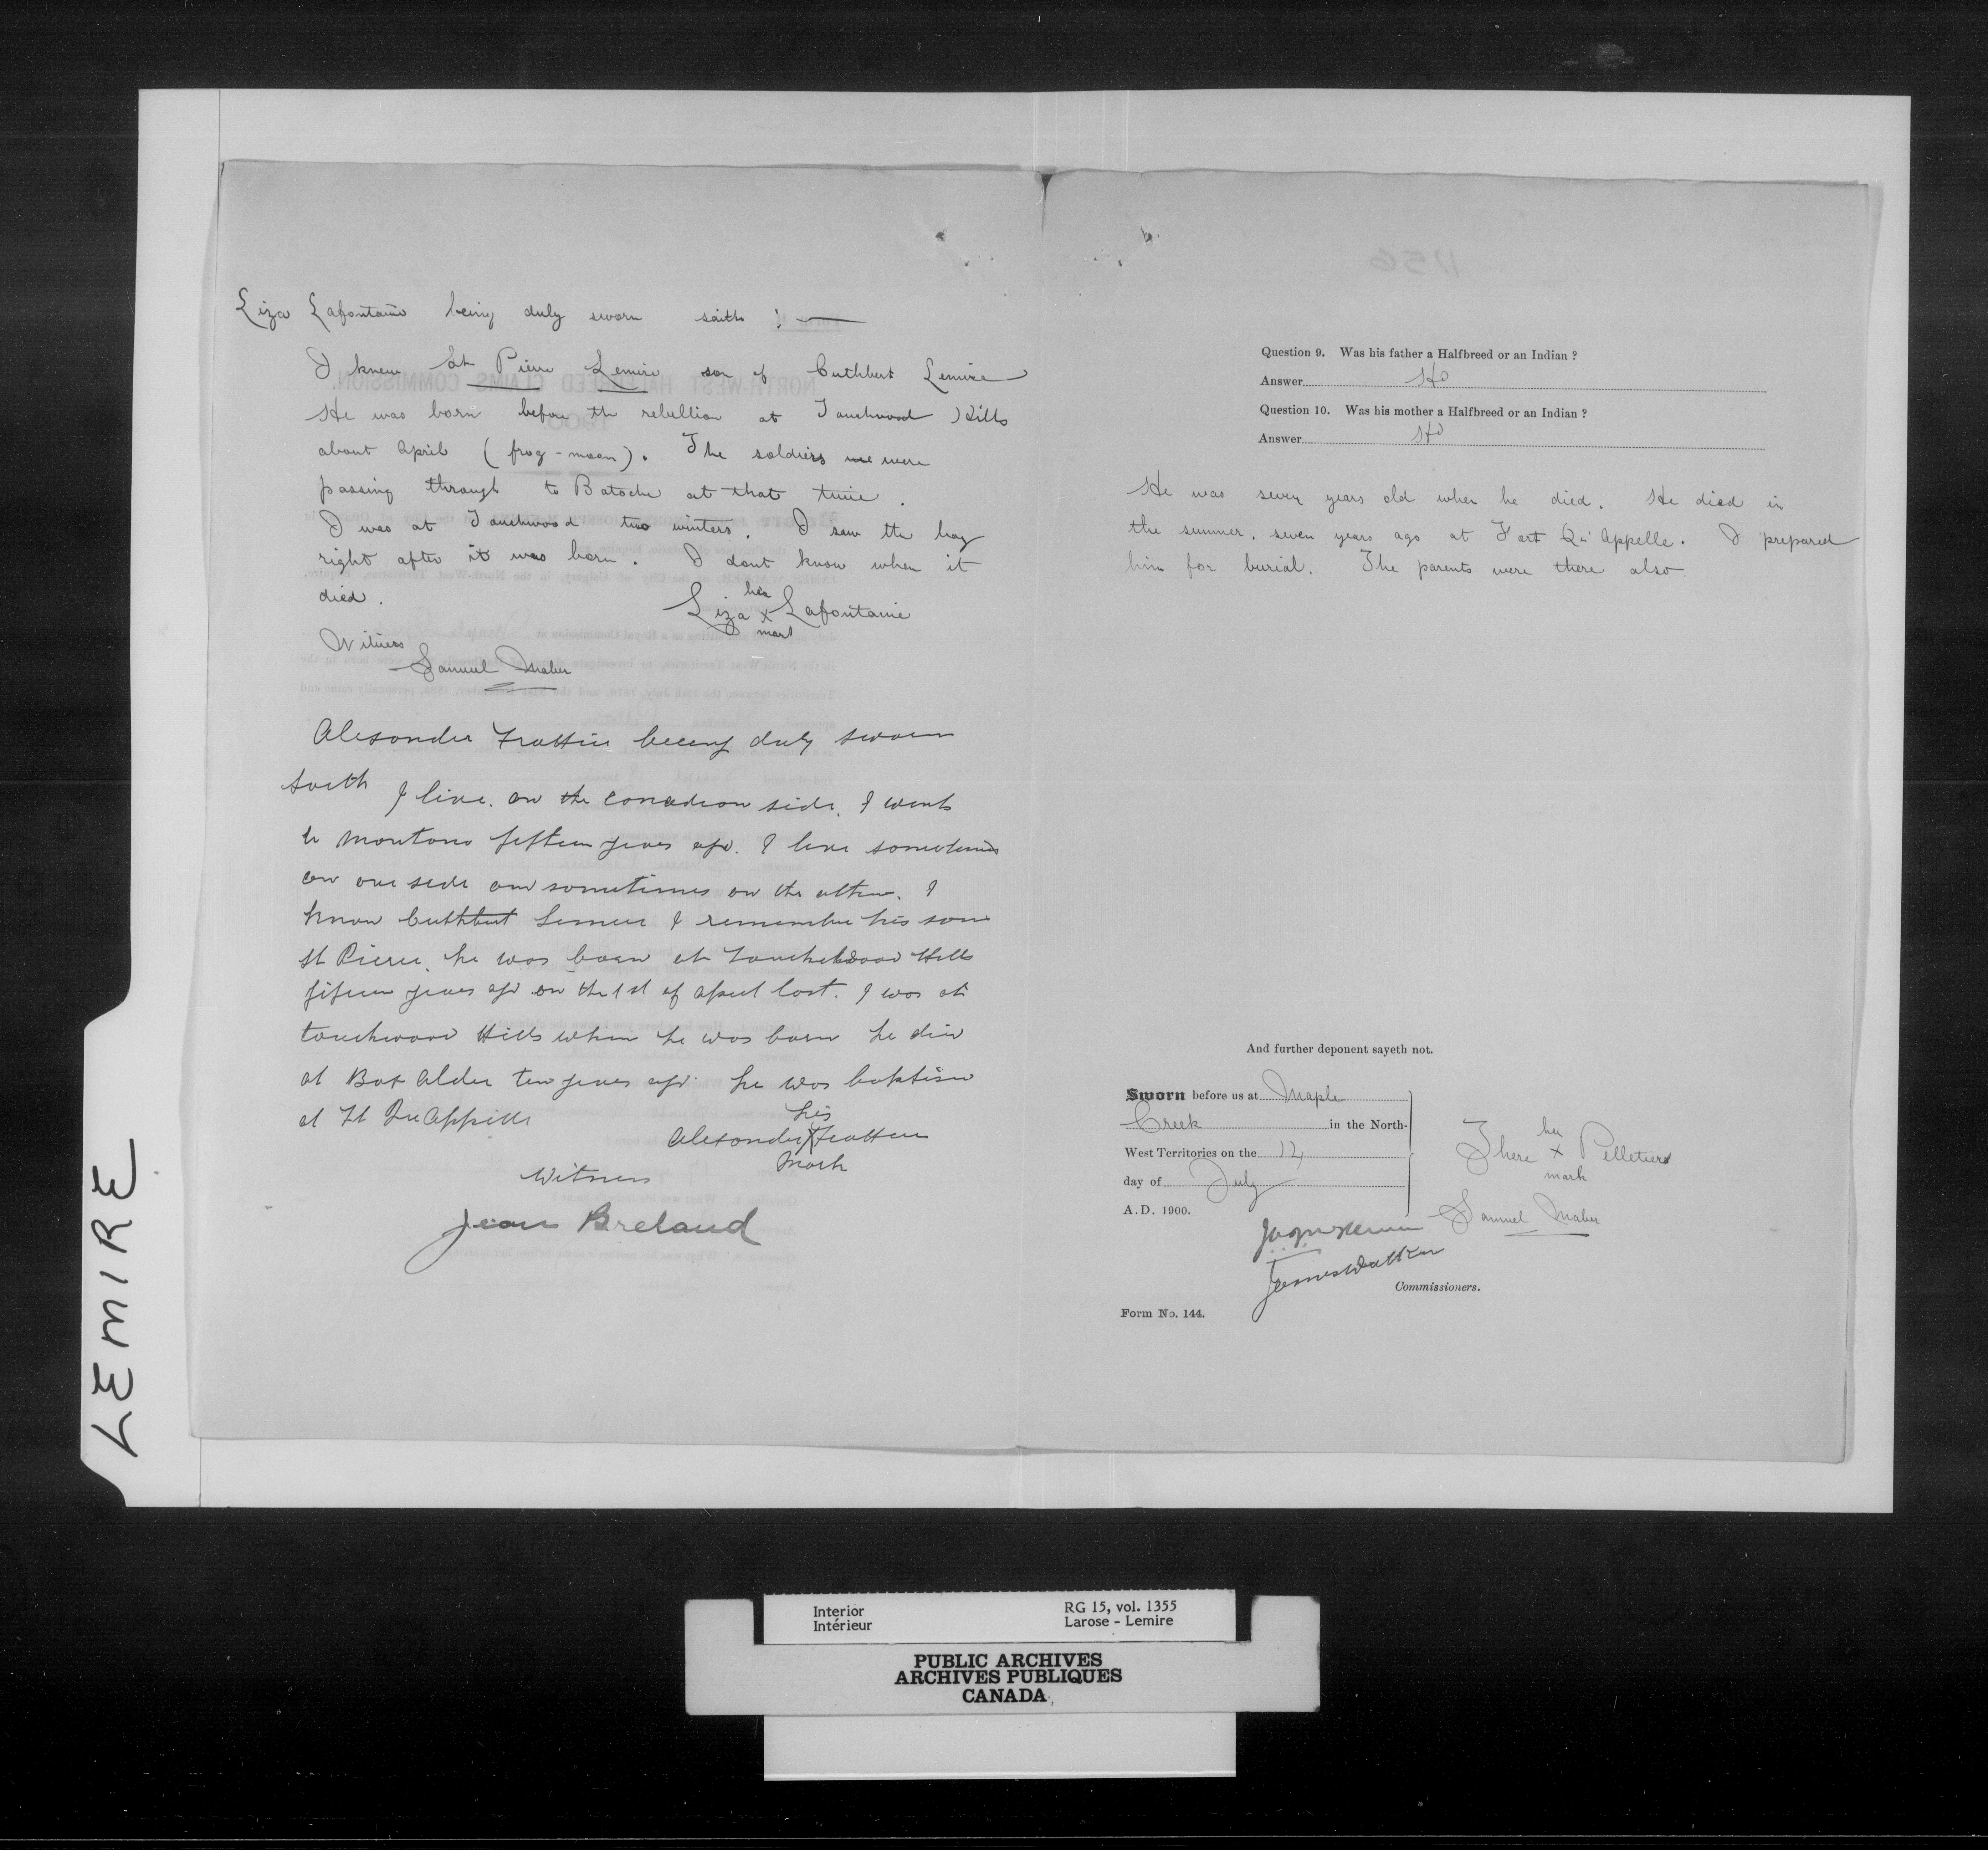 Liza Lafontaine being duly sworn saith :—
I knew St Pierre Lemire son of Cuthbert Lemire
He was born before the rebellion at Touchwood Hills
about April (frog-moon). The soldiers were
passing through to Batoche at that time.
I was at Touchwood two winters. I saw the boy
right after it was born. I dont know when it
died.
her
Liza x Lafontaine
mark
Witness
Samuel Maber
Alexander Trottier being duly sworn
saith I live on the Canadian side. I went
to Montana fifteen years ago. I live sometimes
on one side and sometimes on the other. I
know Cuthbert Lemire I remember his son
St Pierre, he was born at Touchwood Hills
fifteen years ago on the 1st of April last. I was at
touchwood Hills when he was born he died
at Box Alder ten years ago. he was baptised
at Ft Qu'Appelle
his
Alexander X Trottier
mark
Witness
Jean Breland
Question 9. Was his father a Halfbreed or an Indian ?
Answer
Question 10. Was his mother a Halfbreed or an Indian ?
Answer
He was seven years old when he died. He died in
the summer, seven years ago at Fort Qu'Appelle. I prepared
him for burial. The parents were there also.
And further deponent sayeth not.
Sworn before us at Maple
Creek in the North-
West Territories on the 12
day of July
A.D. 1900.
her
x Pelletier
mark
Samuel Maber
James Walker
Commissioners.
Form No. 144.
LEMIRE
Interior
Intérieur
RG 15, vol. 1355
Larose - Lemire
PUBLIC ARCHIVES
ARCHIVES PUBLIQUES
CANADA